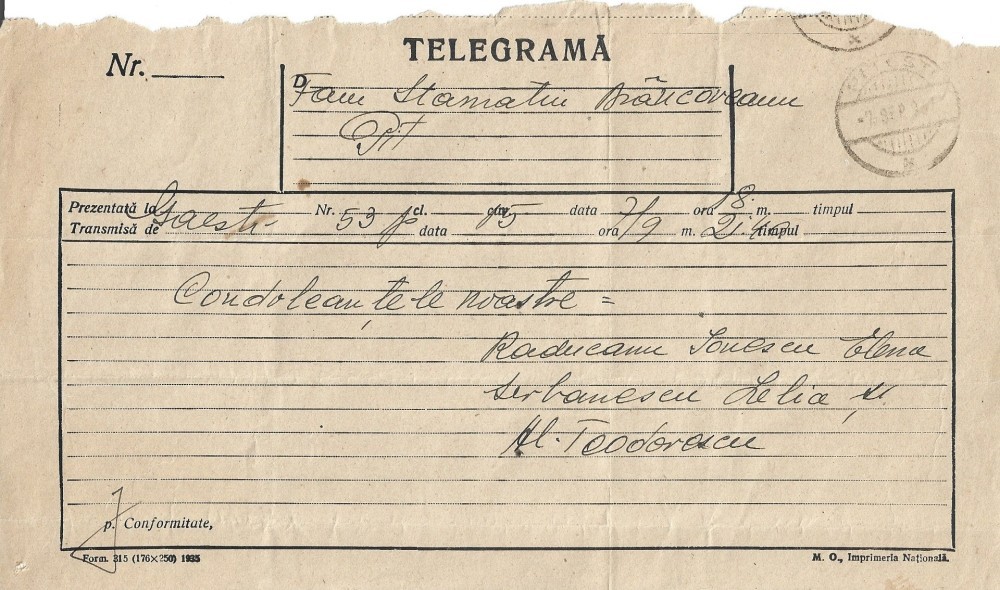 TELEGRAMĂ
Nr.
D
Fam Stamatiu Brâncoveanu
Pit
PITEȘTI
Prezentată la Găești Nr. 53 cl. cuv. 15 data 7/9 ora 18 m. timpul
Transmisă de data ora m. timpul
Condoleanțele noastre =
Raducanu Ionescu Elena
Serbanescu Lelia și
Al. Teodorescu
p. Conformitate,
Form. 315 (176×250) 1935
M. O., Imprimeria Națională.